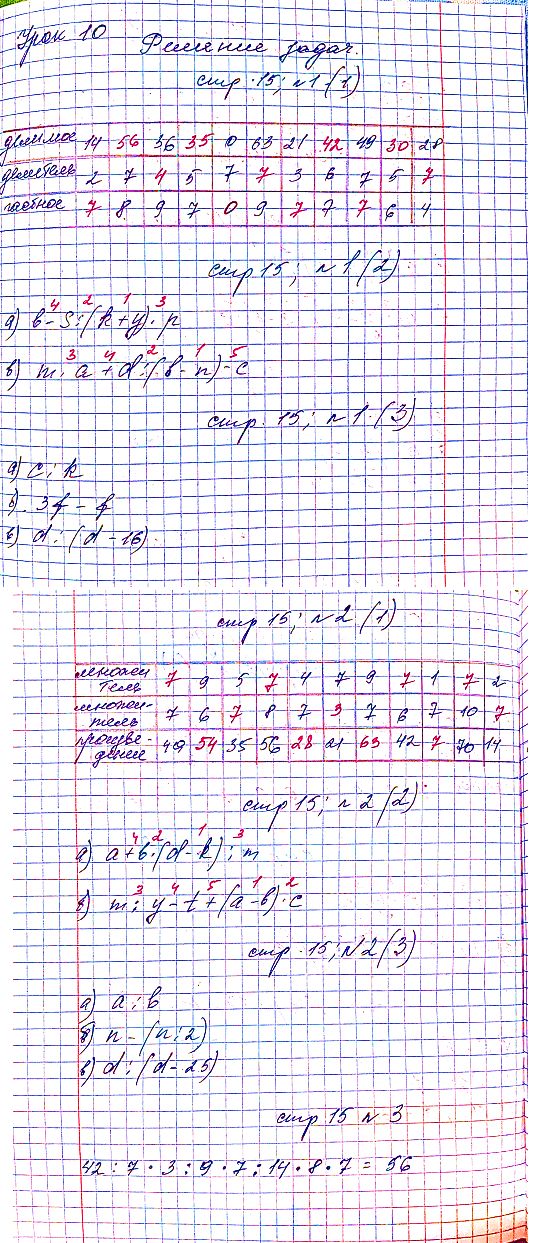 Урок 10
Решение задач.
стр. 15; №1 (1)
делимое 14 56 36 35 0 63 21 42 49 30 28
делитель 2 7 4 5 7 7 3 6 7 5 7
частное 7 8 9 7 0 9 7 7 7 6 4
стр 15; №1 (2)
4 2 1 3
а) b - s : (k + y) · p
3 4 2 1 5
в) m · a + d : (b - n) - c
стр. 15; №1 (3)
а) c : k
б) 3f - f
в) d : (d - 16)
стр 15; №2 (1)
множи
тель 7 9 5 7 4 7 9 7 1 7 2
множи-
тель 7 6 7 8 7 3 7 6 7 10 7
произве-
дение 49 54 35 56 28 21 63 42 7 70 14
стр 15; №2 (2)
4 2 1 3
а) a + b · (d - k) : m
3 4 5 1 2
в) m : y - t + (a - b) · c
стр. 15; №2 (3)
а) a : b
б) n - (n : 2)
в) d : (d - 25)
стр 15 №3
42 : 7 · 3 : 9 · 7 : 14 · 8 · 7 = 56